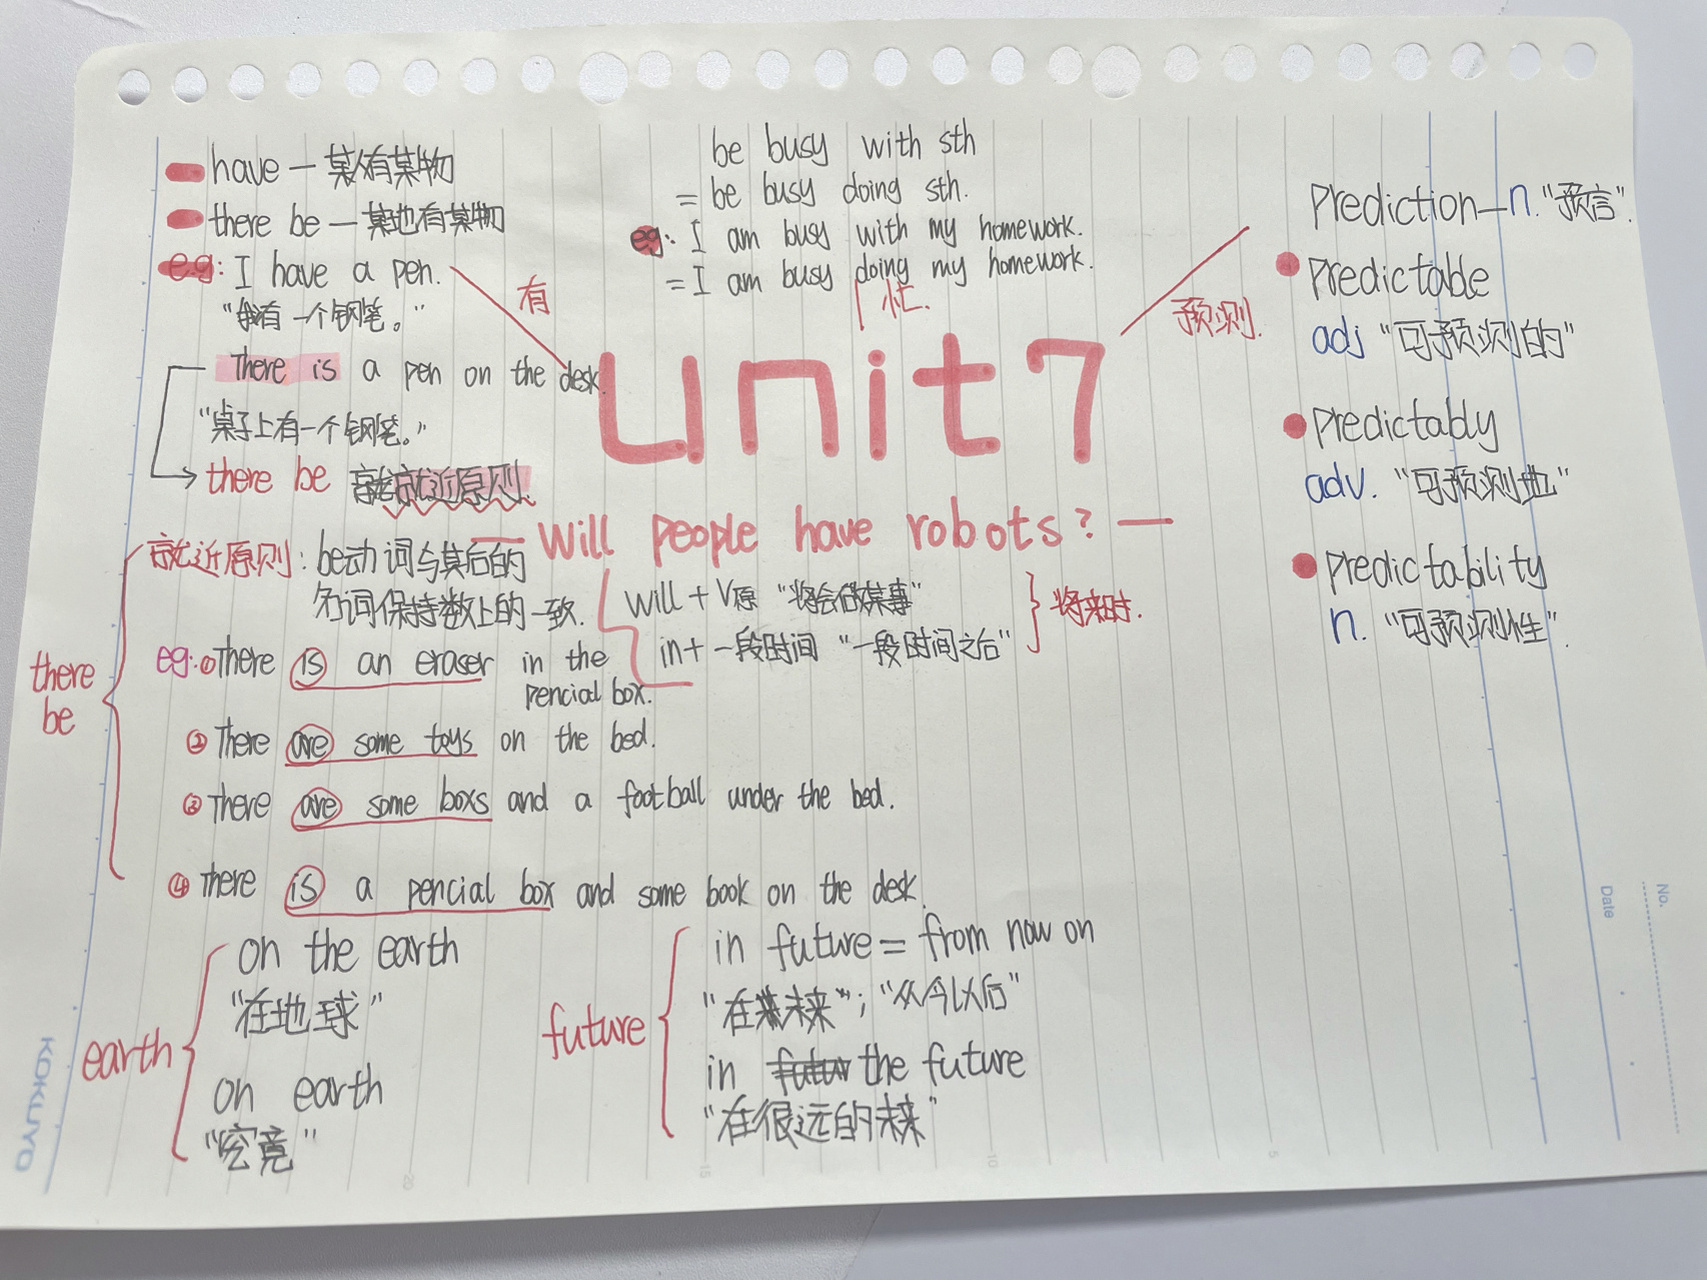 have — 某人有某物
there be — 某地有某物
eg: I have a pen.
"我有一个钢笔。"
There is a pen on the desk
"桌子上有一个钢笔。"
there be 就近原则.
有
be busy with sth
= be busy doing sth.
eg: I am busy with my homework.
= I am busy doing my homework.
忙.
unit7
Will people have robots? —
预测.
Prediction—n. "预言".
Predictable
adj "可预测的"
Predictably
adv. "可预测地"
Predictability
n. "可预测性".
will + V原 "将会做某事"
in + 一段时间 "一段时间之后"
将来时.
there be
就近原则: be动词与其后的
名词保持数上的一致.
eg: ① There is an eraser in the
pencial box.
② There are some toys on the bed.
③ There are some boxs and a football under the bed.
④ There is a pencial box and some book on the desk.
earth
on the earth
"在地球"
on earth
"究竟"
future
in future = from now on
"在未来"; "从今以后"
in the future
"在很远的未来"
KOKUYO
No.
Date
20
15
10
5